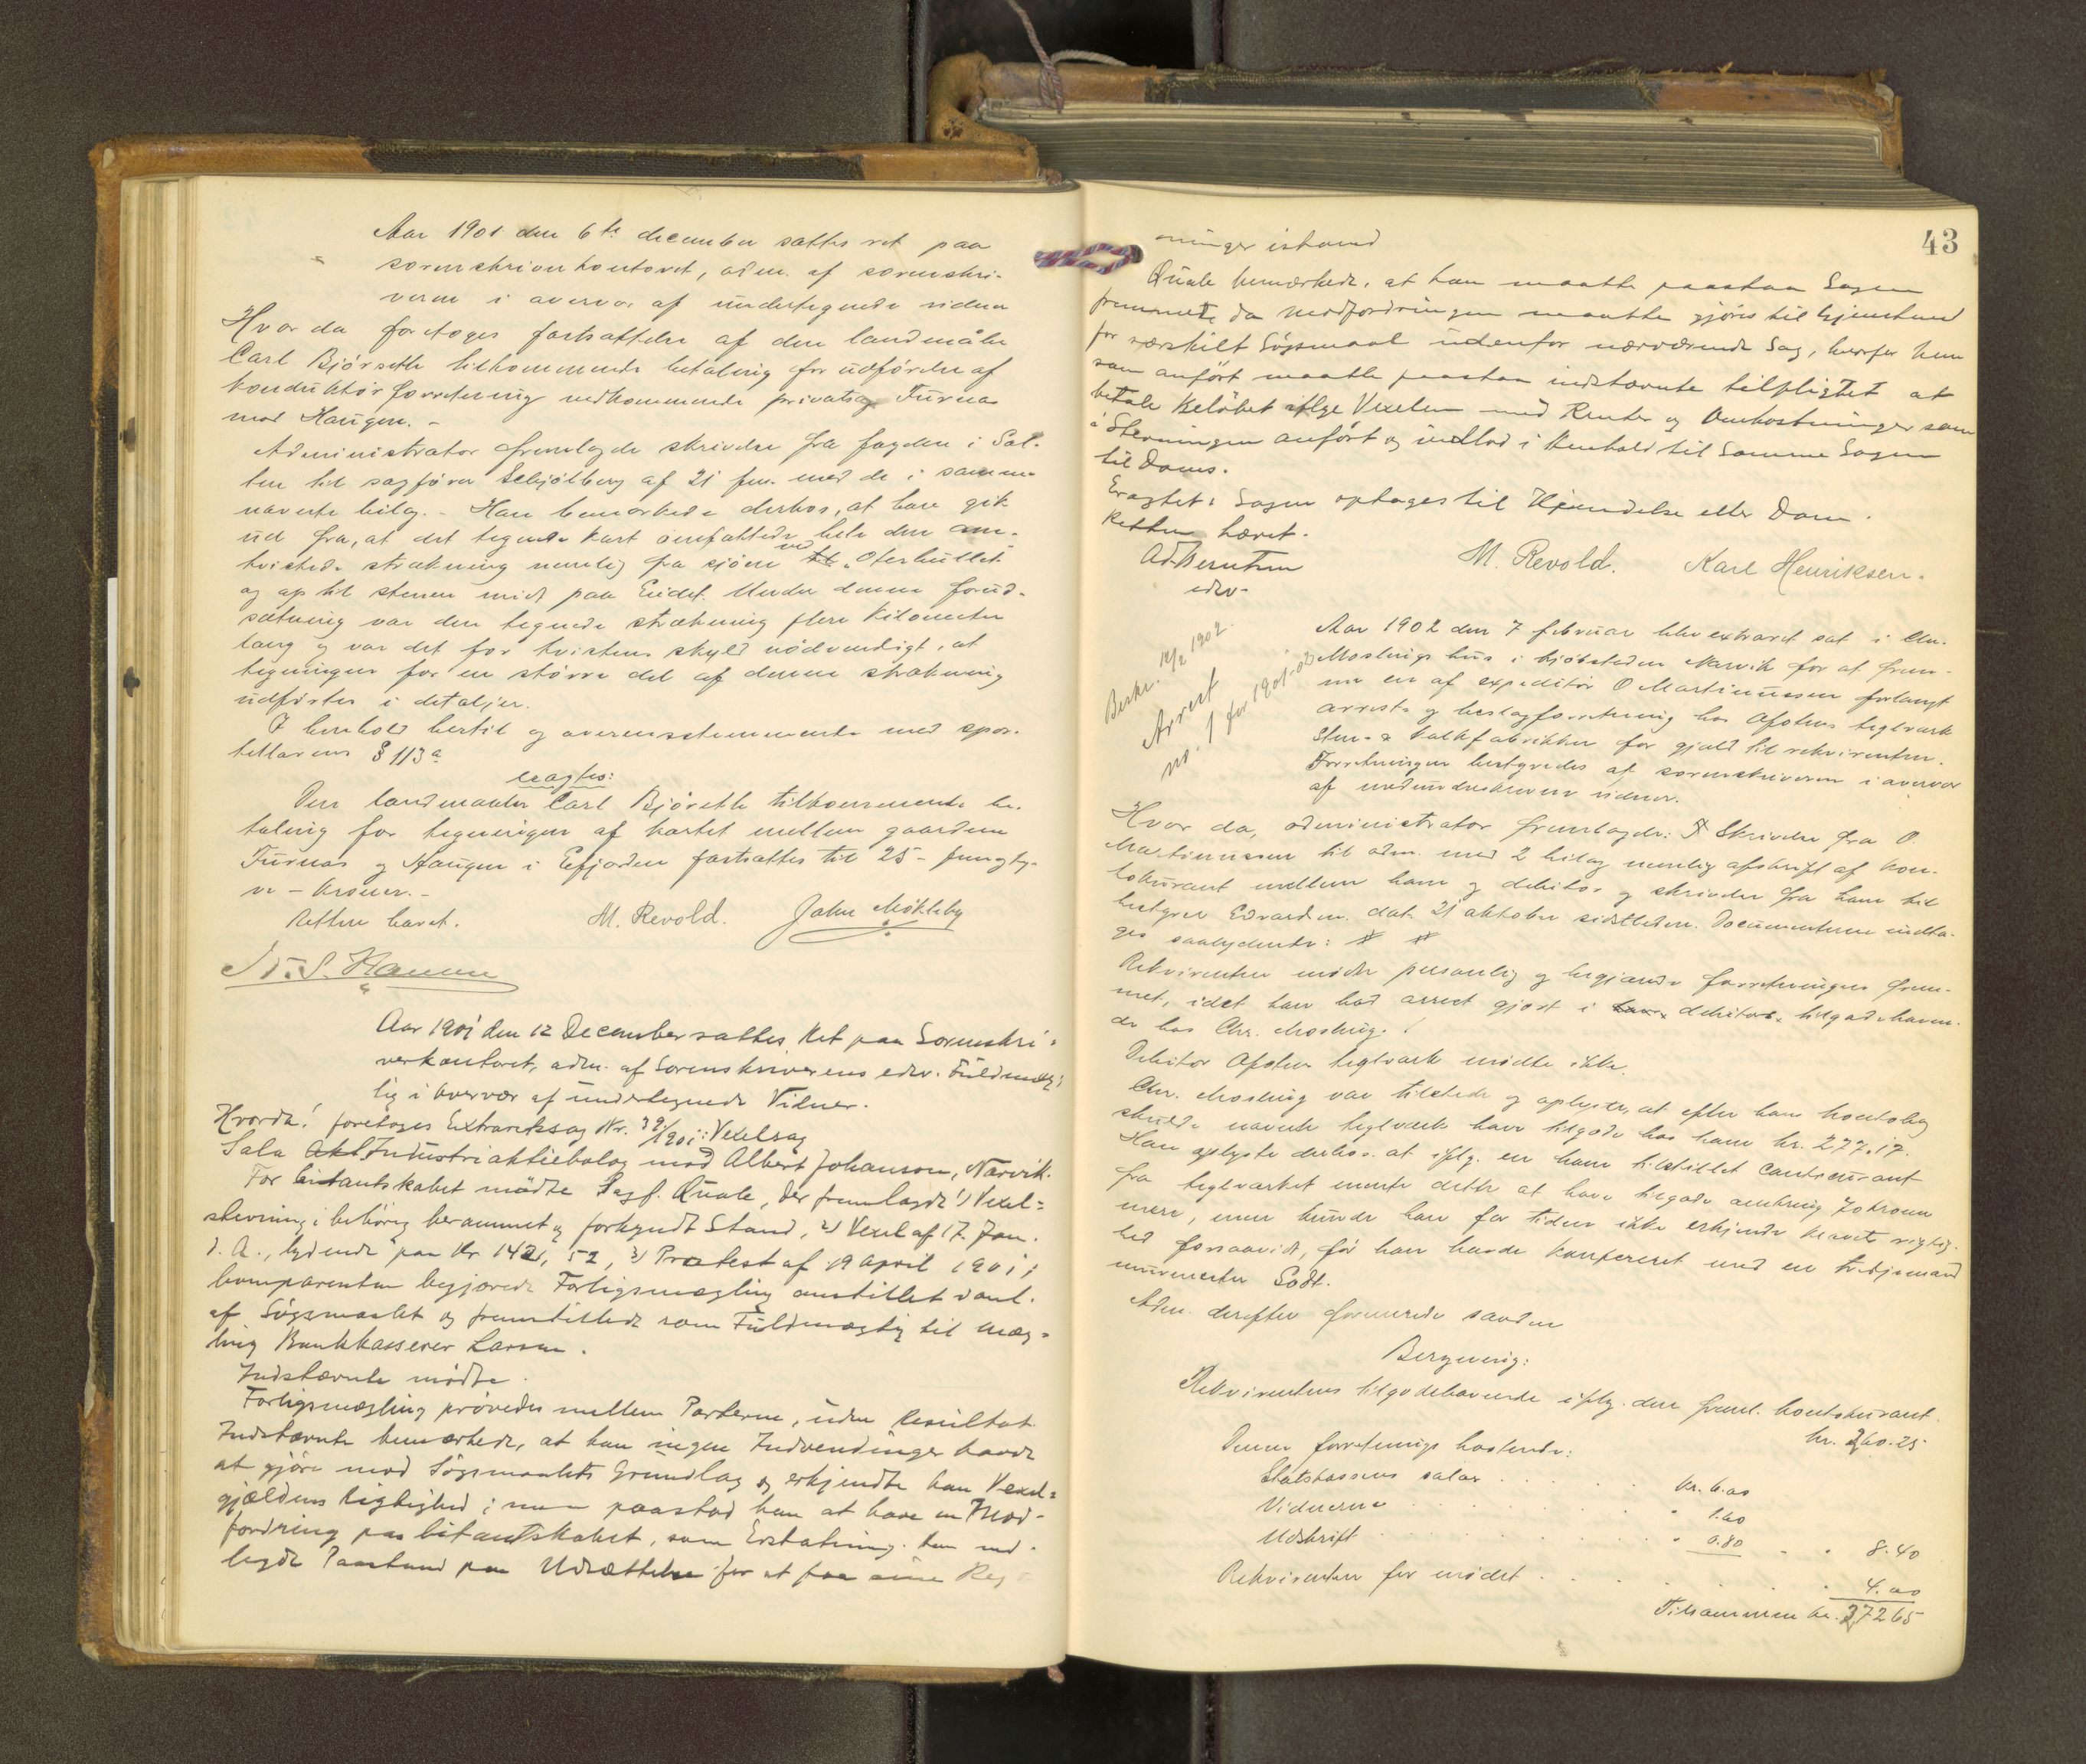 Aar 1901 den 6te december sattes ret paa
sorenskriverkontoret, adm. af sorenskri-
veren i overvær af undertegnede vidner
Hvor da foretoges fastsættelse af den landmåler
Carl Bjørseth tilkommende betaling for udførelse af
konduktørforretning vedkommende privatsag Turnas
mod Haugen. -
Administrator fremlagde skrivelse fra fogden i Sal-
ten til sagfører Schjölberg af 21 f.m. med de i samme
nævnte bilag. - Han bemærkede derhos, at han gik
ud fra, at det tegnede kart omfattede hele den om-
tvistede strækning nemlig fra sjøen ved
og op til stenen midt paa Eidet. Under denne forud-
sætning var den tegnede strækning flere kilometer
lang og var det for tvistens skyld nødvendigt, at
tegningen for en større del af denne strækning
udførtes i detaljer.
I henhold hertil og overensstemmende med spor-
tellovens § 113 a
eragtes:
Den landmaaler Carl Bjørseth tilkommende be-
taling for tegningen af kartet mellem gaardene
Turnas og Haugen i Efjorden fastsættes til 25 - femogty-
ve - kroner. -
Retten hævet.
M. Revold. John Mökleby
Aar 1901 den 12 December sattes Ret paa Sorenskri-
verkontoret, adm. af Sorenskriverens edsv. Fuldmæg-
tig i Overvær af undertegnede Vidner.
Hvorda! foretoges Extraretssag Nr. 39/1901: Vexelsag
Sala Industriaktiebolag mod Albert Johanson, Narvik.
For Citantskabet mødte Sagf. Quale, der fremlagde 1) Vexel=
stevning i behørig berammet og forkyndt Stand, 2) Vexel af 17. Jan.
d. A., lydende paa Kr 1421,52, 3) Protest af 19 April 1901;
Komparenten begjærede Forligsmægling anstillet vanl.
af Søgsmaalet og fremstillede som Fuldmægtig til Mæg=
ling Bankkasserer Larsen.
Indstævnte mødte.
Forligsmægling prøvedes mellem Parterne, uden Resultat.
Indstævnte bemærkede, at han ingen Indvendinger havde
at gjøre mod Søgsmaalets Grundlag og erkjendte han Vexel=
gjældens Rigtighed; men paastod han at have en Mod-
fordring paa Citantskabet, som Erstatning. Han ned-
lagde Paastand paa Udsættelse for at faa sine Reg-
43
ninger istand
Quale bemærkede, at han maatte paastaa Sagen
fremmet, da Modfordringen maatte gjøres til Gjenstand
for særskilt Søgsmaal udenfor nærværende Sag, hvorfor han
som anført maatte paastaa indstævnte tilpligtet at
betale Beløbet iflge Vexelen med Renter og Omkostninger som
i Stevningen anført og indlod i Henhold til Samme Sagen
til Doms.
Eragtet: Sagen optages til Kjendelse eller Dom.
Retten hævet.
edsv.
M. Revold. Karl Henriksen.
Berkr. 14/2 1902.
Arrest
no. 1 for 1901-02
Aar 1902 den 7 februar blev extraret sat i Chr.
Moslings hus i kjøbstaden Narvik for at frem-
me en af expeditør O Martinussen forlangt
arrest- og beslagforretning hos Afoten teglværk
Sten- & kalkfabrikker for gjæld til rekvirenten.
Forretningen bestyredes af sorenskriveren i overvær
af medunderskrevne vidner.
Hvor da, administrator fremlagde: Skrivelse fra O.
Martinussen til adm. med 2 bilag nemlig afskrift af kon-
tokurant mellem ham og debitor og skrivelse fra ham til
bestyrer Edvardsen dat. 21 oktober sidstleden. Documenterne indta-
ges saalydende:
Rekvirenten mødte personlig og begjærede forretningen frem-
met, idet han bad arrest gjort i debitors tilgodehaven-
de hos Chr. Mosling.
Debitor Afoten teglværk mødte ikke.
Chr. Mosling var tilstede og oplyste, at efter hans kontobog
skulde nævnte teglværk have tilgode hos ham kr. 277.17.
Han oplyste derhos, at iflg. en ham tilstillet contocurant
fra teglværket mente dette at have tilgode omkring 70 kroner
mere, men kunde han for tiden ikke erkjende kravets rigtig-
hed forsaavidt, før han havde konfereret med en tredjemand
murmester Sødt.
Adm. derefter formerede saadan
Beregning:
Rekvirentens tilgodehavende iflg. den freml. kontokurant.
kr. 360.25
Denne forretnings kostende:
Statskassens salær . . . kr. 6.00
Vidnerne . . . " 1.60
Udskrift . . . " 0.80 . . 8.40
Rekvirenten for mødet . . . 4.00
Tilsammen kr. 372 65